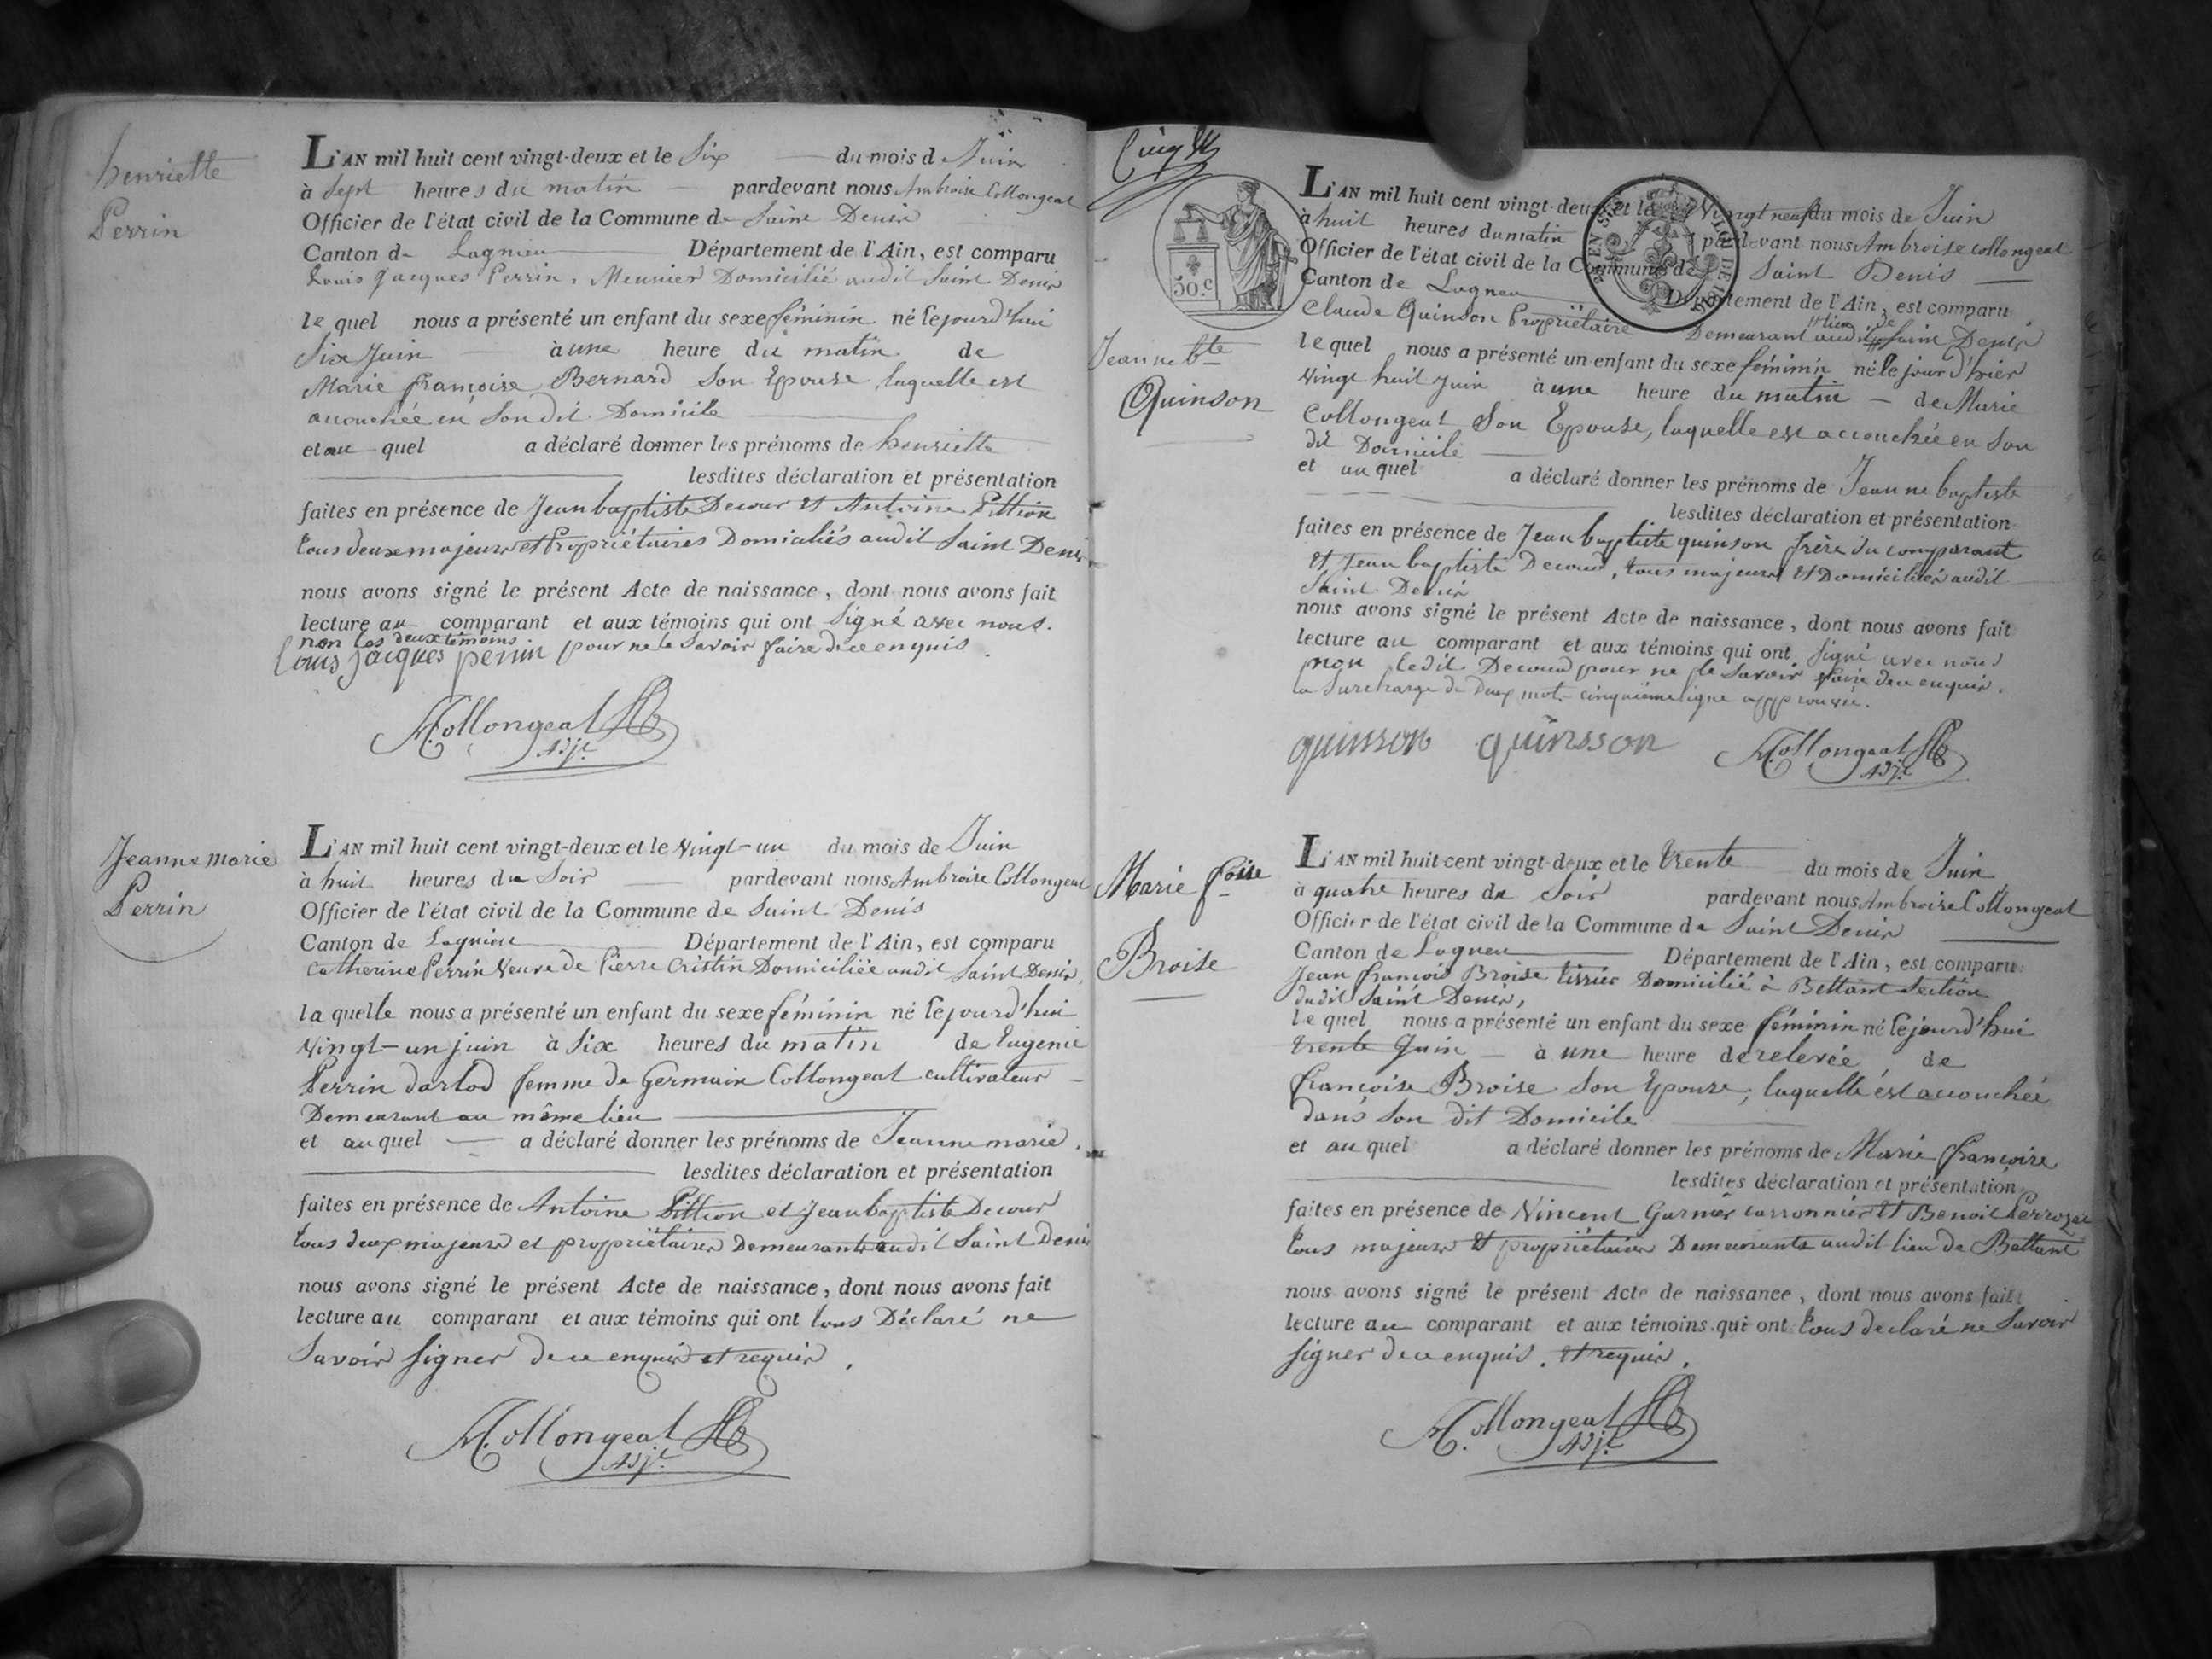 henriette
Perrin
L'AN mil huit cent vingt-deux et le Six du mois d Juin
à Sept heures du matin pardevant nous Ambroise Collongeat
Officier de l'état civil de la Commune de Saint Denis
Canton de Lagnieu Département de l'Ain, est comparu
Louis Jacques Perrin, Meunier Domicilié audit Saint Denis
le quel nous a présenté un enfant du sexe féminin né Cejourd'hui
Six Juin à une heure du matin de
Marie françoise Bernard Son Epouse laquelle est
accouchée en Son dit Domicile
et au quel a déclaré donner les prénoms de henriette
lesdites déclaration et présentation
faites en présence de Jean baptiste Decour et Antoine Pittion
tous deux majeurs et Propriétaires Domiciliés audit Saint Denis
nous avons signé le présent Acte de naissance, dont nous avons fait
lecture au comparant et aux témoins qui ont Signé avec nous.
non les deux témoins pour ne le Savoir faire de ce enquis.
louis jacques perrin
A. Collongeat
Adj.t
Jeanne marie
Perrin
L'AN mil huit cent vingt-deux et le Vingt-un du mois de Juin
à huit heures du Soir pardevant nous Ambroise Collongeat
Officier de l'état civil de la Commune de Saint Denis
Canton de Lagnieu Département de l'Ain, est comparu
Catherine Perrin Veuve de Pierre Cristin Domiciliée audit Saint Denis,
la quelle nous a présenté un enfant du sexe féminin né Cejourd'hui
Vingt-un juin à Six heures du matin de Eugenie
Perrin darlod femme de Germain Collongeat cultivateur
Demeurant au même lieu
et au quel a déclaré donner les prénoms de Jeanne marie.
lesdites déclaration et présentation
faites en présence de Antoine Pittion et Jean baptiste Decour
tous deux majeurs et propriétaires Demeurants audit Saint Denis
nous avons signé le présent Acte de naissance, dont nous avons fait
lecture au comparant et aux témoins qui ont tous Déclaré ne
Savoir Signer de ce enquis et requis.
A. Collongeat
Adj.t
Cinq
50.c
Jeanne b.te
Quinson
L'AN mil huit cent vingt-deux et le Vingt neuf du mois de Juin
à huit heures du matin pardevant nous Ambroise Collongeat
Officier de l'état civil de la Commune de Saint Denis
Canton de Lagneu Département de l'Ain, est comparu
Claude Quinson Propriétaire Demeurant audit lieu de Saint Denis
le quel nous a présenté un enfant du sexe féminin né le jour d'hier
Vingt huit Juin à une heure du matin de Marie
Collongeat Son Epouse, laquelle est accouchée en Son
dit Domicile
et au quel a déclaré donner les prénoms de Jeanne baptiste
lesdites déclaration et présentation
faites en présence de Jean baptiste quinson frère du comparant
et Jean baptiste Decour, tous majeurs et Domiciliés audit
Saint Denis
nous avons signé le présent Acte de naissance, dont nous avons fait
lecture au comparant et aux témoins qui ont Signé avec nous
non ledit Decour pour ne le Savoir faire de ce enquis.
la Surcharge de Deux mots cinquième ligne approuvée.
quinson quinsson A. Collongeat
Adj.t
Marie f.oise
Broise
L'AN mil huit cent vingt-deux et le trente du mois de Juin
à quatre heures du Soir pardevant nous Ambroise Collongeat
Officier de l'état civil de la Commune de Saint Denis
Canton de Lagneu Département de l'Ain, est comparu
Jean françois Broise tissier Domicilié à Bettant Section
dudit Saint Denis,
le quel nous a présenté un enfant du sexe féminin né Cejourd'hui
trente Juin à une heure de relevée de
françoise Broise Son Epouse, laquelle est accouchée
dans Son dit Domicile
et au quel a déclaré donner les prénoms de Marie françoise
lesdites déclaration et présentation
faites en présence de Vincent Garnier carronnier et Benoit Perrozet
tous majeurs et propriétaires Demeurants audit lieu de Bettant
nous avons signé le présent Acte de naissance, dont nous avons fait
lecture au comparant et aux témoins qui ont tous declaré ne Savoir
Signer de ce enquis. et requis.
A. Collongeat
Adj.t